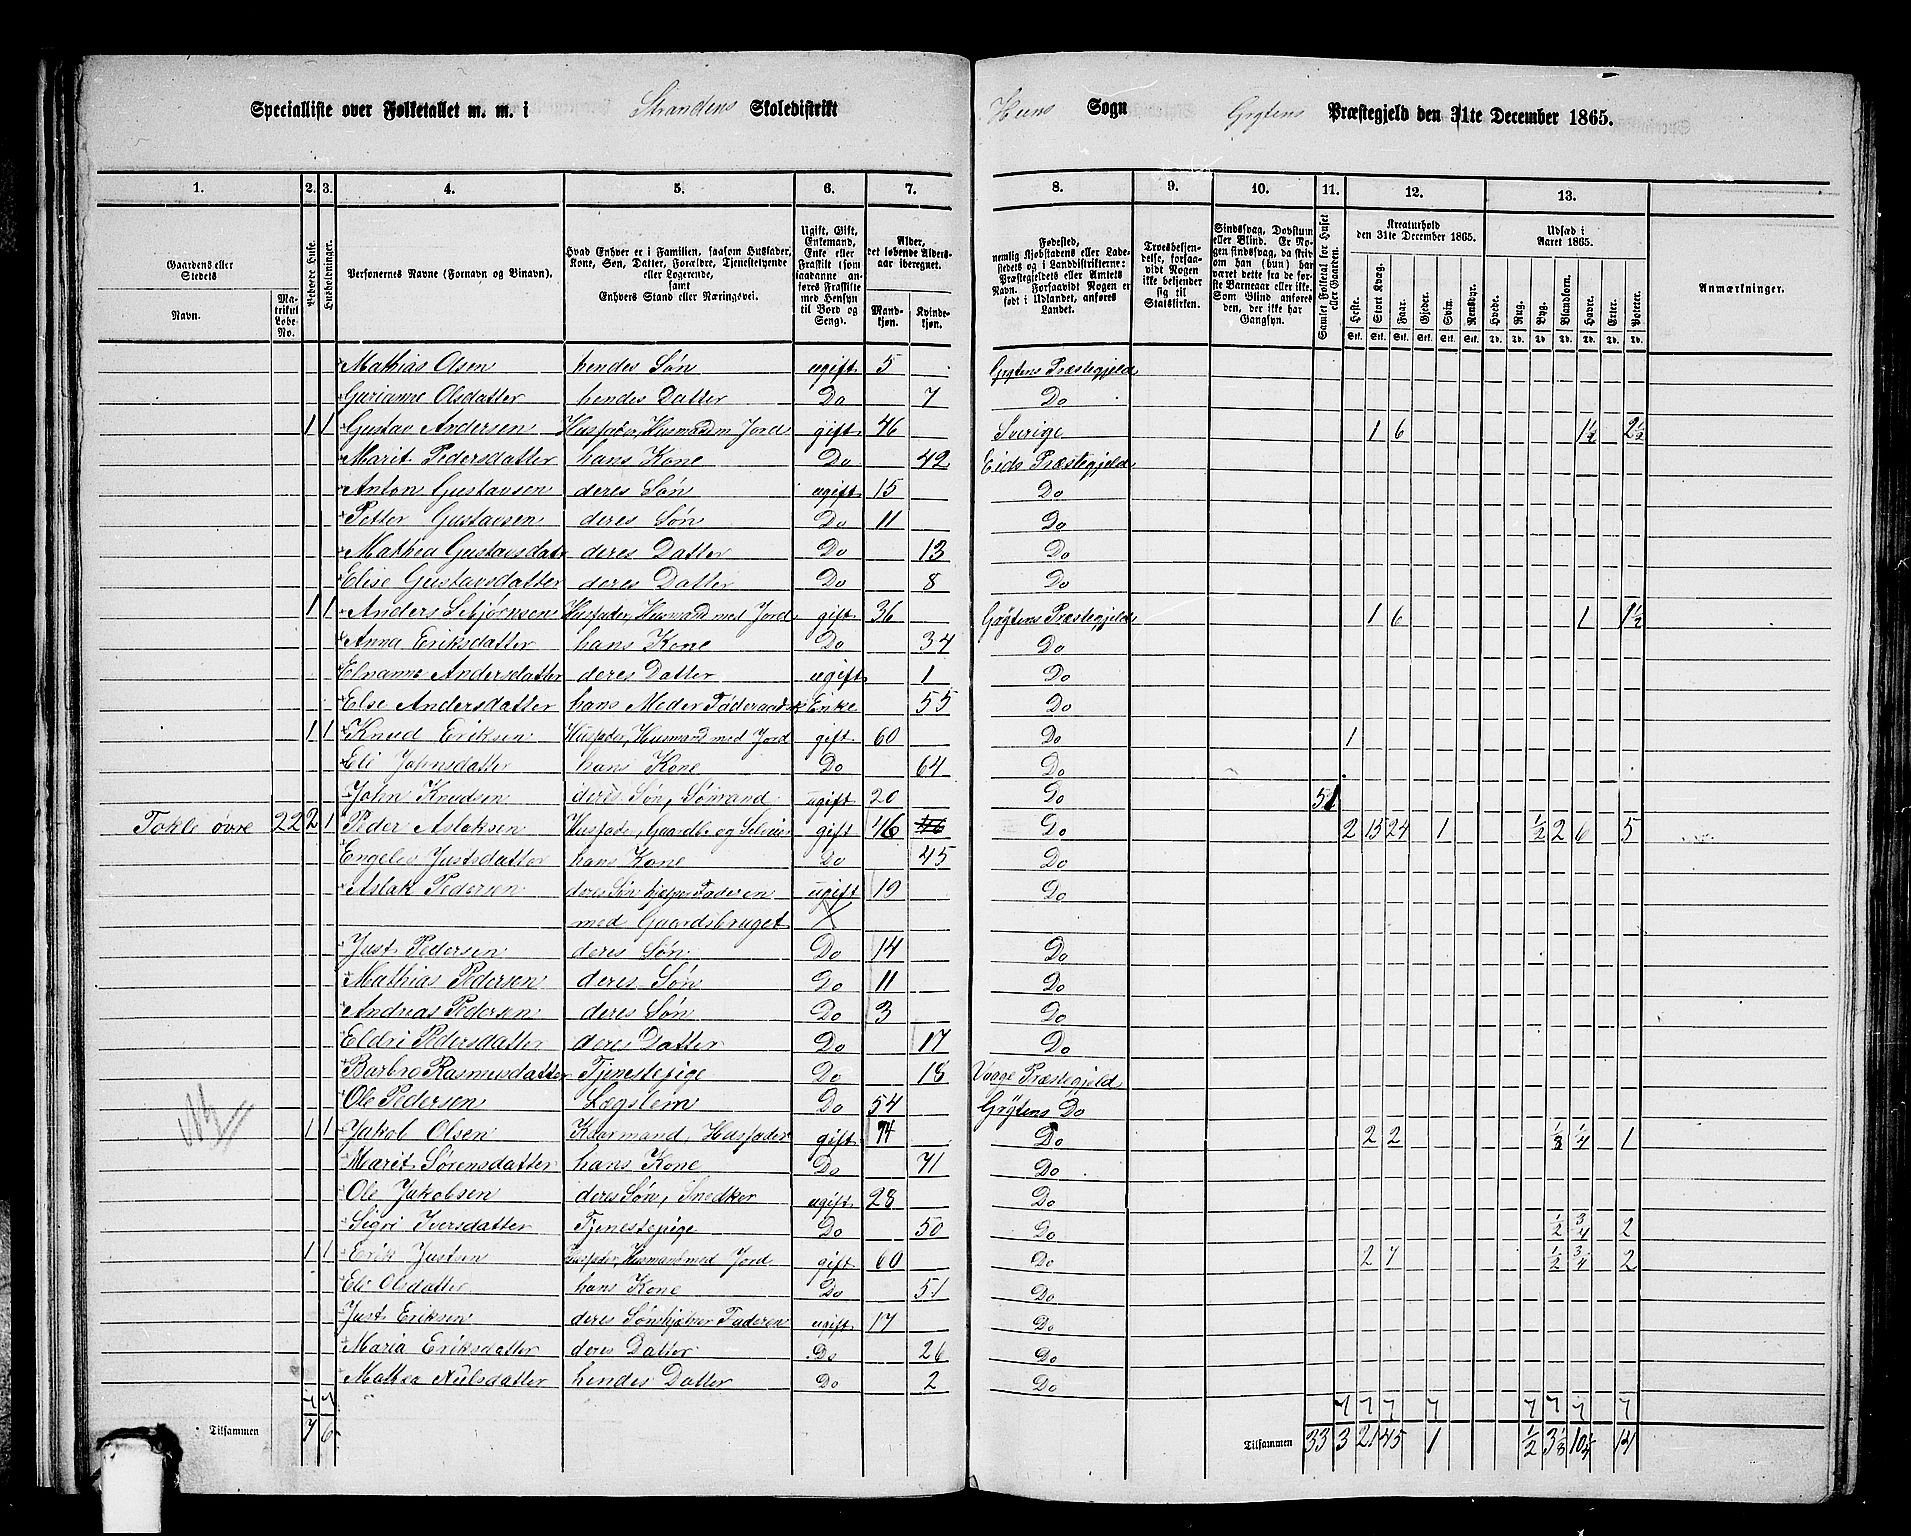 Specialliste over Folketallet m. m. i Strandens Skoledistrikt Heens Sogn Grytens Præstegjeld den 31te December 1865.
1. 2. 3. 4. 5. 6. 7. 8. 9. 10. 11. 12. 13.
Gaardens eller Stedets
Navn.
Matrikul Løbe-No.
Beboede Huse.
Husholdninger.
Personernes Navne (Fornavn og Binavn).
Hvad Enhver er i Familien, saasom Husfader, Kone, Søn, Datter, Forældre, Tjenestetyende eller Logerende, samt Enhvers Stand eller Næringsvei.
Ugift, Gift, Enkemand, Enke eller Fraskilt; i som saadanne anføres Fraskilte med Hensyn til Bord og Seng).
Alder, det løbende Alders-aar iberegnet.
Mandkjøn. Kvindekjøn.
Fødested, nemlig Kjøbstadens eller Ladestedets og i Landdistrikterne: Præstegjeldets eller Amtets Navn. Forsaavidt Nogen er født i Udlandet, anføres Landet.
Troesbekjendelse, forsaavidt Nogen ikke bekjender sig til Statskirken.
Sindssvag, Døvstum eller Blind. Er Nogen sindssvag, da skrives om han (hun) har været dette fra de første Barneaar eller ikke. Som Blind anføres den, der ikke har Gangsyn.
Samlet Folketal for Huset eller Gaarden.
Kreaturhold den 31te December 1865.
Heste. Stort Kvæg. Faar. Gjeder. Svin. Rensdyr.
Udsæd i Aaret 1865.
Hvede. Rug. Byg. Blandkorn. Havre. Erter. Poteter.
Anmærkninger.
Mathias Olsen hendes Søn ugift 5 Grytens Præstegjeld
Garianne Olsdatter hendes Datter Do 7 Do
1 1 Gustav Andersen Husfader, Husmand m Jord gift 46 Sverige 1 6 1½ 2½
Marit Pedersdatter hans Kone Do 42 Eids Præstegjeld
Anton Gustavsen deres Søn ugift 15 Do
Petter Gustavsen deres Søn Do 11 Do
Mathea Gustavsdatr deres Datter Do 13 Do
Elise Gustavsdatter deres Datter Do 8 Do
1 1 Anders Sebjørnsen Husfader, Husmand med Jord gift 36 Grytens Præstegjeld 1 6 1 1½
Anna Eriksdatter hans Kone Do 34 Do
Elnanne Andersdatter deres Datter ugift 1 Do
Else Andersdatter hans Moder Føderaadsk Enke 55 Do
1 1 Knud Eriksen Husfader, Husmand med Jord gift 60 Do 1
Eli Johnsdatter hans Kone Do 64 Do
John Knudsen deres Søn, Sømand ugift 20 Do 51
Tokle øvre 22 2 1 Peder Aslaksen Husfader, Gaardbr og Selveier gift 46 Do 2 15 24 1 ½ 2 6 5
Engeles Justsdatter hans Kone Do 45 Do
Aslak Pedersen deres Søn hjælper Faderen ugift 19 Do
med Gaardsbruget
Just Pedersen deres Søn Do 14 Do
Mathias Pedersen deres Søn Do 11 Do
Andreas Pedersen deres Søn Do 3 Do
Eldri Pedersdatter deres Datter Do 17 Do
Barbro Rasmusdatter Tjenestepige Do 18 Vaage Præstegjeld
Ole Pedersen Lægslem Do 54 Grytens Do
1 1 Jakob Olsen Kaarmand, Husfader gift 74 Do 2 2 ⅛ ¼ 1
Marit Sørensdatter hans Kone Do 71 Do
Ole Jakobsen deres Søn, Snedker ugift 28 Do
Sigri Iversdatter Tjenestepige Do 50 Do ½ ¾ 2
1 1 Erik Justsen Husfader, Husmand med Jord gift 60 Do 2 7 ½ ¾ 2
Eli Olsdatter hans Kone Do 51 Do
Just Eriksen deres Søn hjelper Faderen ugift 17 Do
Maria Eriksdatter deres Datter Do 26 Do
Mathea Nilsdatter hendes Datter Do 2 Do
Tilsammen 7 6 Tilsammen 33 3 21 45 1 ½ 3⅛ 10¼ 14